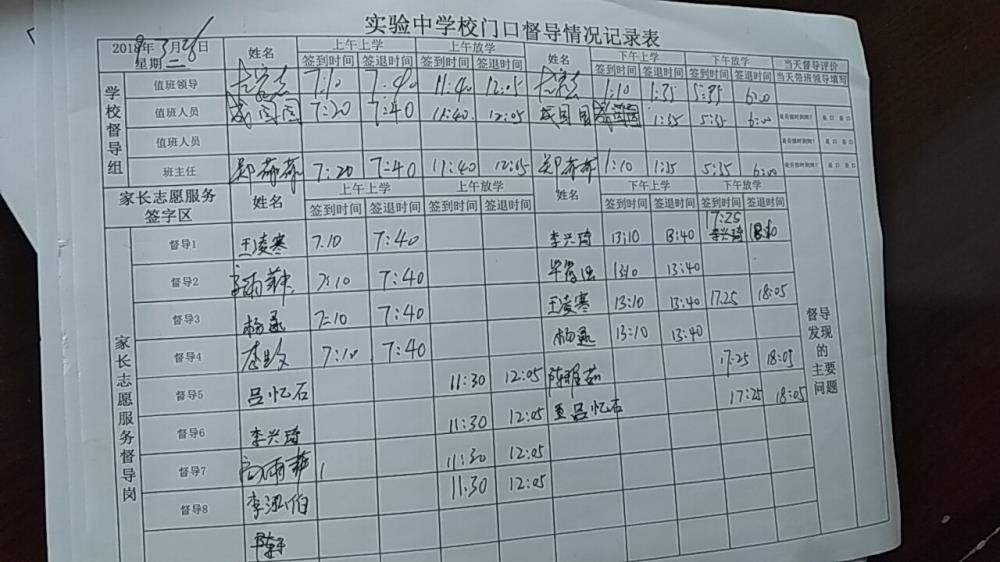 实验中学校门口督导情况记录表
2018年3月26日 星期二
姓名 上午上学 上午放学 姓名 下午上学 下午放学 当天督导评价
签到时间 签退时间 签到时间 签退时间 签到时间 签退时间 签到时间 签退时间 当天带班领导填写
学校督导组
值班领导 7:10 7:40 11:40 12:05 1:10 1:35 5:35 6:00
值班人员 7:20 7:40 11:40 12:05 1:35 5:35 6:00
值班人员
班主任 郑茹茹 7:20 7:40 11:40 12:05 郑茹茹 1:10 1:35 5:35 6:00
家长志愿服务签字区 姓名 上午上学 上午放学 姓名 下午上学 下午放学
签到时间 签退时间 签到时间 签退时间 签到时间 签退时间 签到时间 签退时间
家长志愿服务督导岗
督导1 王凌寒 7:10 7:40 李兴琦 13:10 13:40 17:25 李兴琦
督导2 7:10 7:40 13:10 13:40
督导3 杨 7:10 7:40 王凌寒 13:10 13:40 17:25 18:05
督导4 李 7:10 7:40 杨 13:10 13:40
督导5 吕忆石 11:30 12:05 陈 17:25 18:05
督导6 李兴琦 11:30 12:05 吕忆石 17:25 18:05
督导7 高雨菲 11:30 12:05
督导8 李 伯 11:30 12:05
督导发现的主要问题